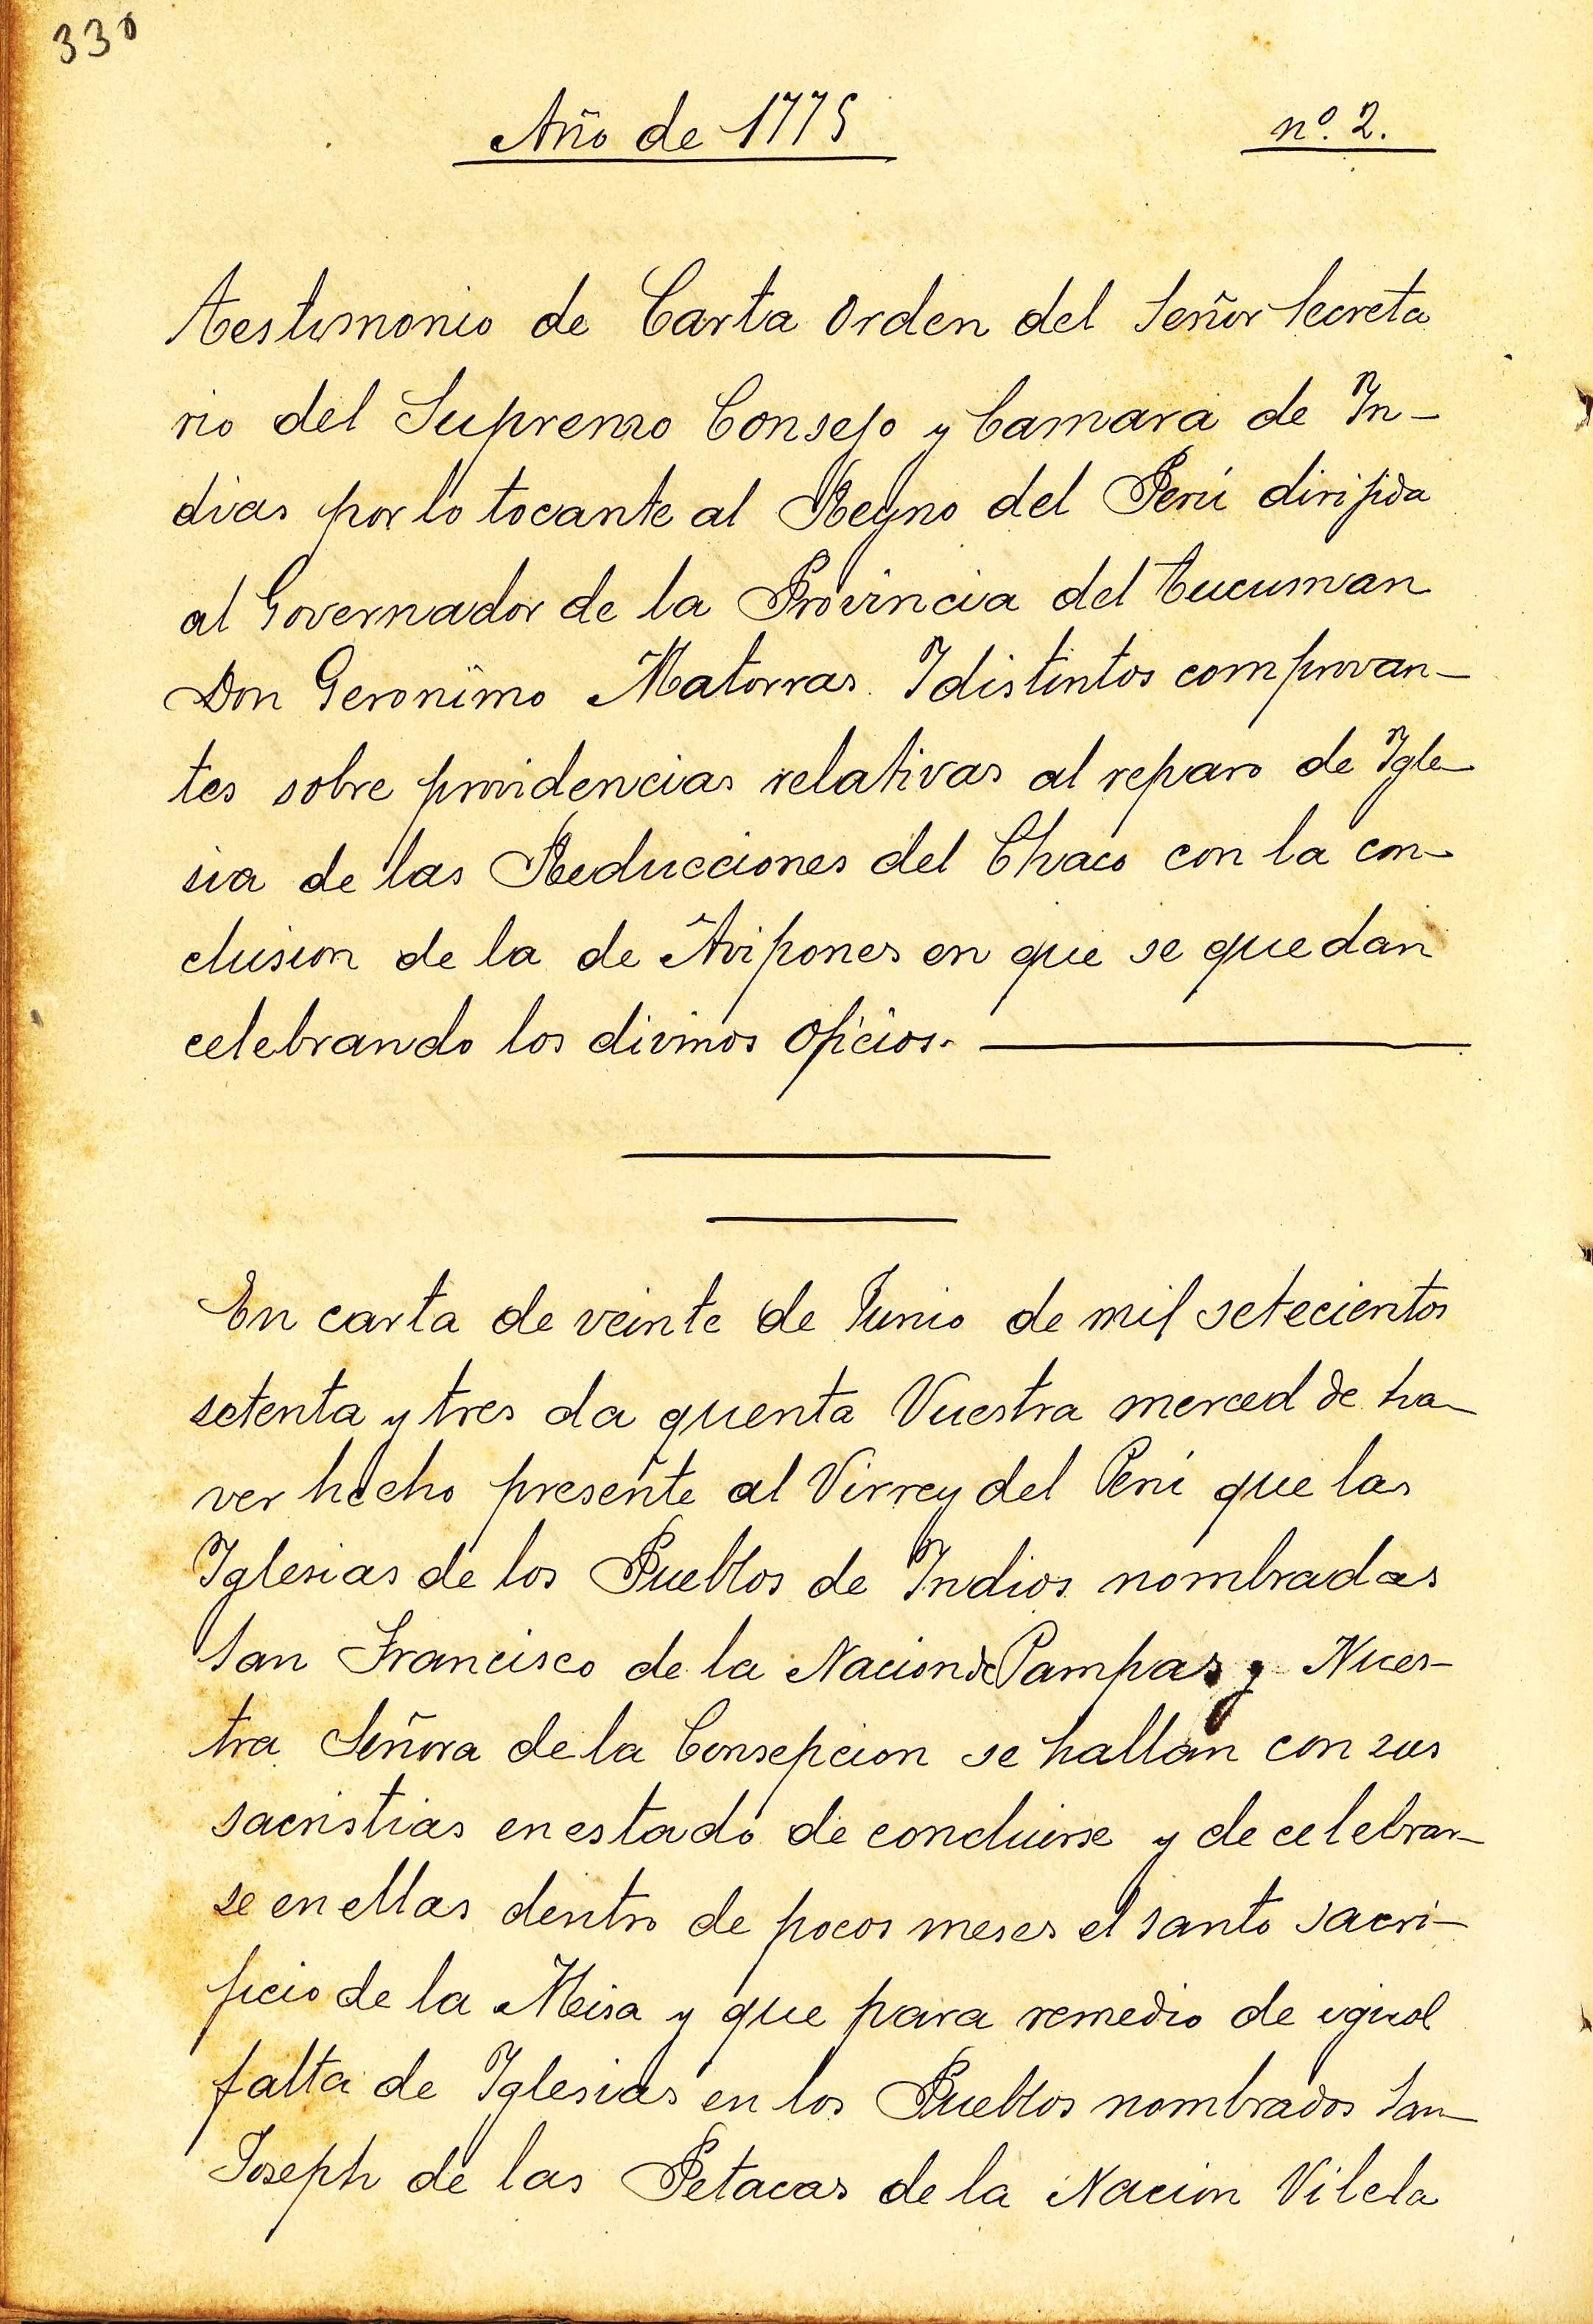 330
Año de 1775
nº. 2.
Testimonio de Carta Orden del Señor Secreta
rio del Supremo Consejo y Camara de In-
dias por lo tocante al Reyno del Perú dirijida
al Governador de la Provincia del Tucuman
Don Geronimo Matorras. Y distintos comprovan-
tes sobre providencias relativas al reparo de Igle-
sia de las Reducciones del Chaco con la con-
clusion de la de Avipones en que se quedan
celebrando los divinos oficios.
En carta de veinte de Junio de mil setecientos
setenta y tres da quenta Vuestra merced de ha-
ver hecho presente al Virrey del Perú que las
Iglesias de los Pueblos de Indios nombradas
San Francisco de la Nacion de Pampas y Nues-
tra Señora de la Consepcion se hallan con sus
sacristias en estado de concluirse y de celebrar-
se en ellas dentro de pocos meses el santo sacri-
ficio de la Misa y que para remedio de igual
falta de Iglesias en los Pueblos nombrados San
Joseph de las Petacas de la Nacion Vilela